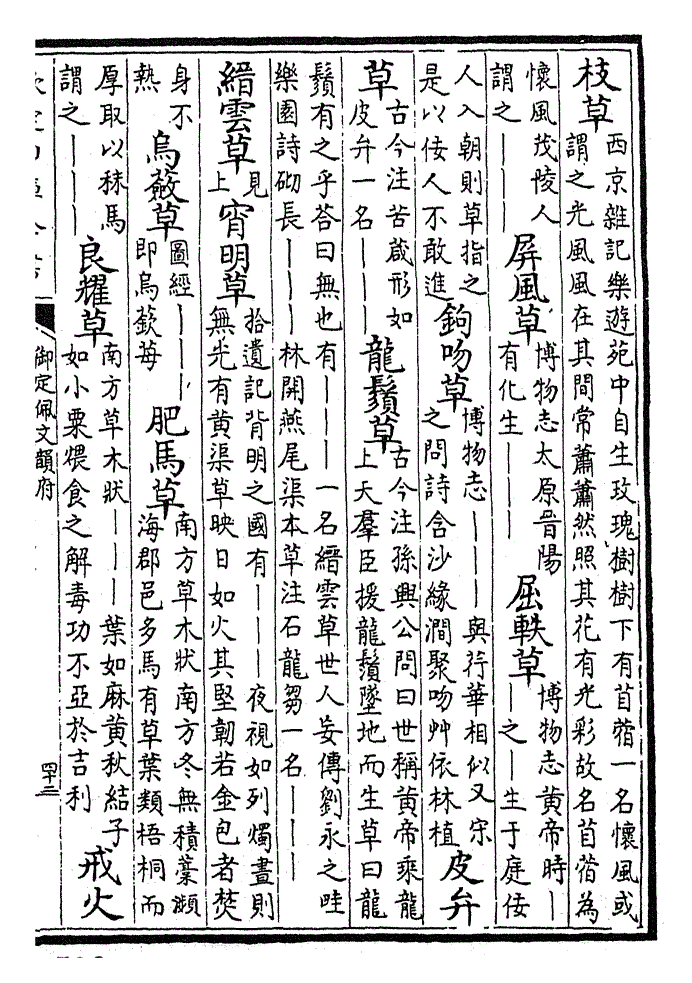 枝草 西京雜記樂遊苑中自生玫瑰樹樹下有苜蓿一名懷風或謂之光風風在其間常蕭蕭然照其花有光彩故名苜蓿為
懷風茂陵人謂之――― 屏風草 博物志太原晉陽有化生――― 屈軼草 博物志黃帝時――之―生于庭佞
人入朝則草指之是以佞人不敢進 鉤吻草 博物志―――與荇華相似又宋之問詩含沙緣澗聚吻艸依林植 皮弁
草 古今注苦葴形如皮弁一名――― 龍鬚草 古今注孫興公問曰世稱黃帝乘龍上天羣臣援龍鬚墜地而生草曰龍
鬚有之乎荅曰無也有―――一名縉雲草世人妄傳劉永之畦樂園詩砌長―――林開燕尾渠本草注石龍芻一名―――
縉雲草 見上 宵明草 拾遺記背明之國有―――夜視如列燭晝則無光有黃渠草映日如火其堅韌若金包者焚
身不熱 烏蘞草 圖經―――即烏蘞苺 肥馬草 南方草木狀南方冬無積藁瀕海郡邑多馬有草葉類梧桐而
厚取以秣馬謂之――― 良耀草 南方草木狀―――葉如麻黃秋結子如小粟煨食之解毒功不亞於吉利 戒火
御定佩文韻府
四十三